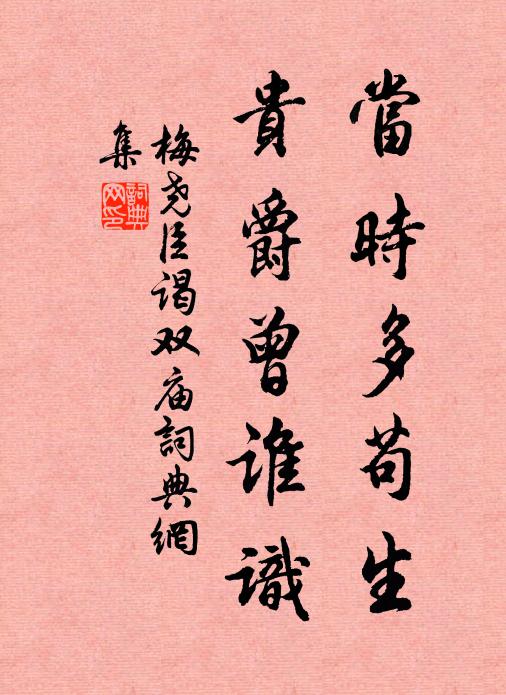 當時多苟生
貴爵曾誰識
梅尧臣谒双庙詞典網
集
詞典网印